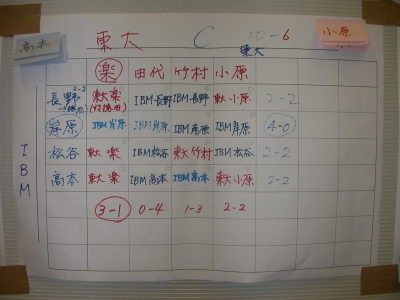 高本 東大 C 10-6 小原
東大
楽 田代 竹村 小原
長野 2-2 東大楽 IBM長野 IBM長野 東大小原 2-2
岸原 IBM岸原 IBM岸原 IBM岸原 IBM岸原 4-0
松谷 東大楽 IBM松谷 東大竹村 IBM松谷 2-2
高本 東大楽 IBM高本 IBM高本 東大小原 2-2
3-1 0-4 1-3 2-2
IBM